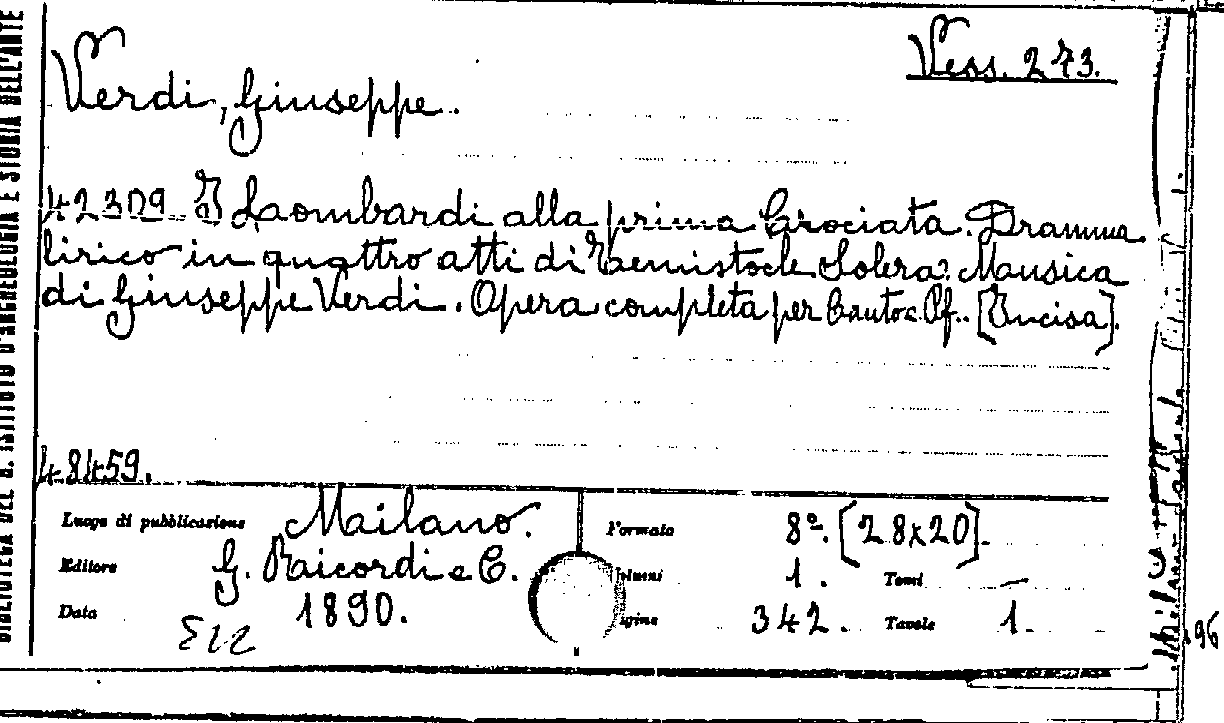 BIBLIOTECA DEL R. ISTITUTO D'ARCHEOLOGIA E STORIA DELL'ARTE
Vess. 273.
Verdi, Giuseppe.
42309 I Laombardi alla prima Crociata. Dramma
lirico in quattro atti di Taemistocle Solera. Mausica
di Giuseppe Verdi. Opera completa per Canto e Pf.. [Incisa].
48459.
Luogo di pubblicazione Mailano. Formato 8º. [28x20].
Editore G. Raicordi e C. Volumi 1. Tomi —
Data 1890. Pagine 342. Tavole 1.
96